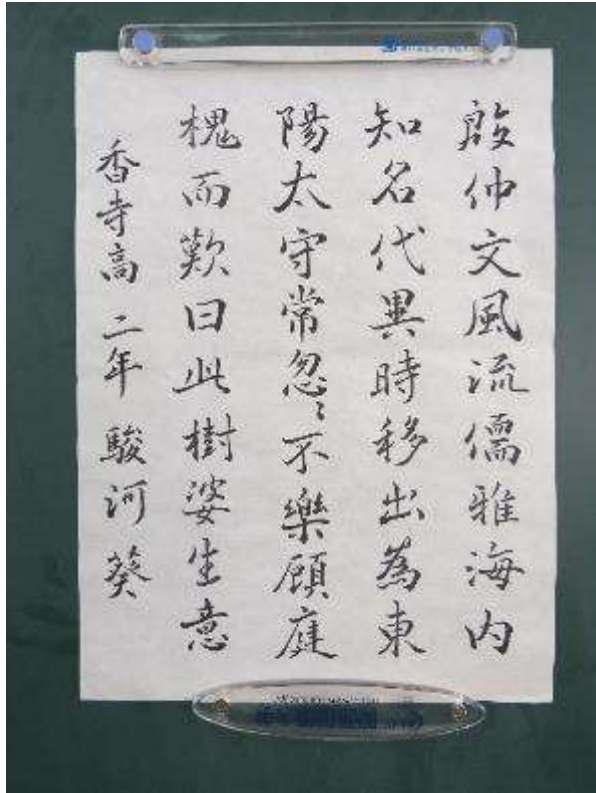 殷仲文風流儒雅海内
知名代異時移出為東
陽太守常忽〻不樂顧庭
槐而歎曰此樹婆生意
香寺高二年駿河葵